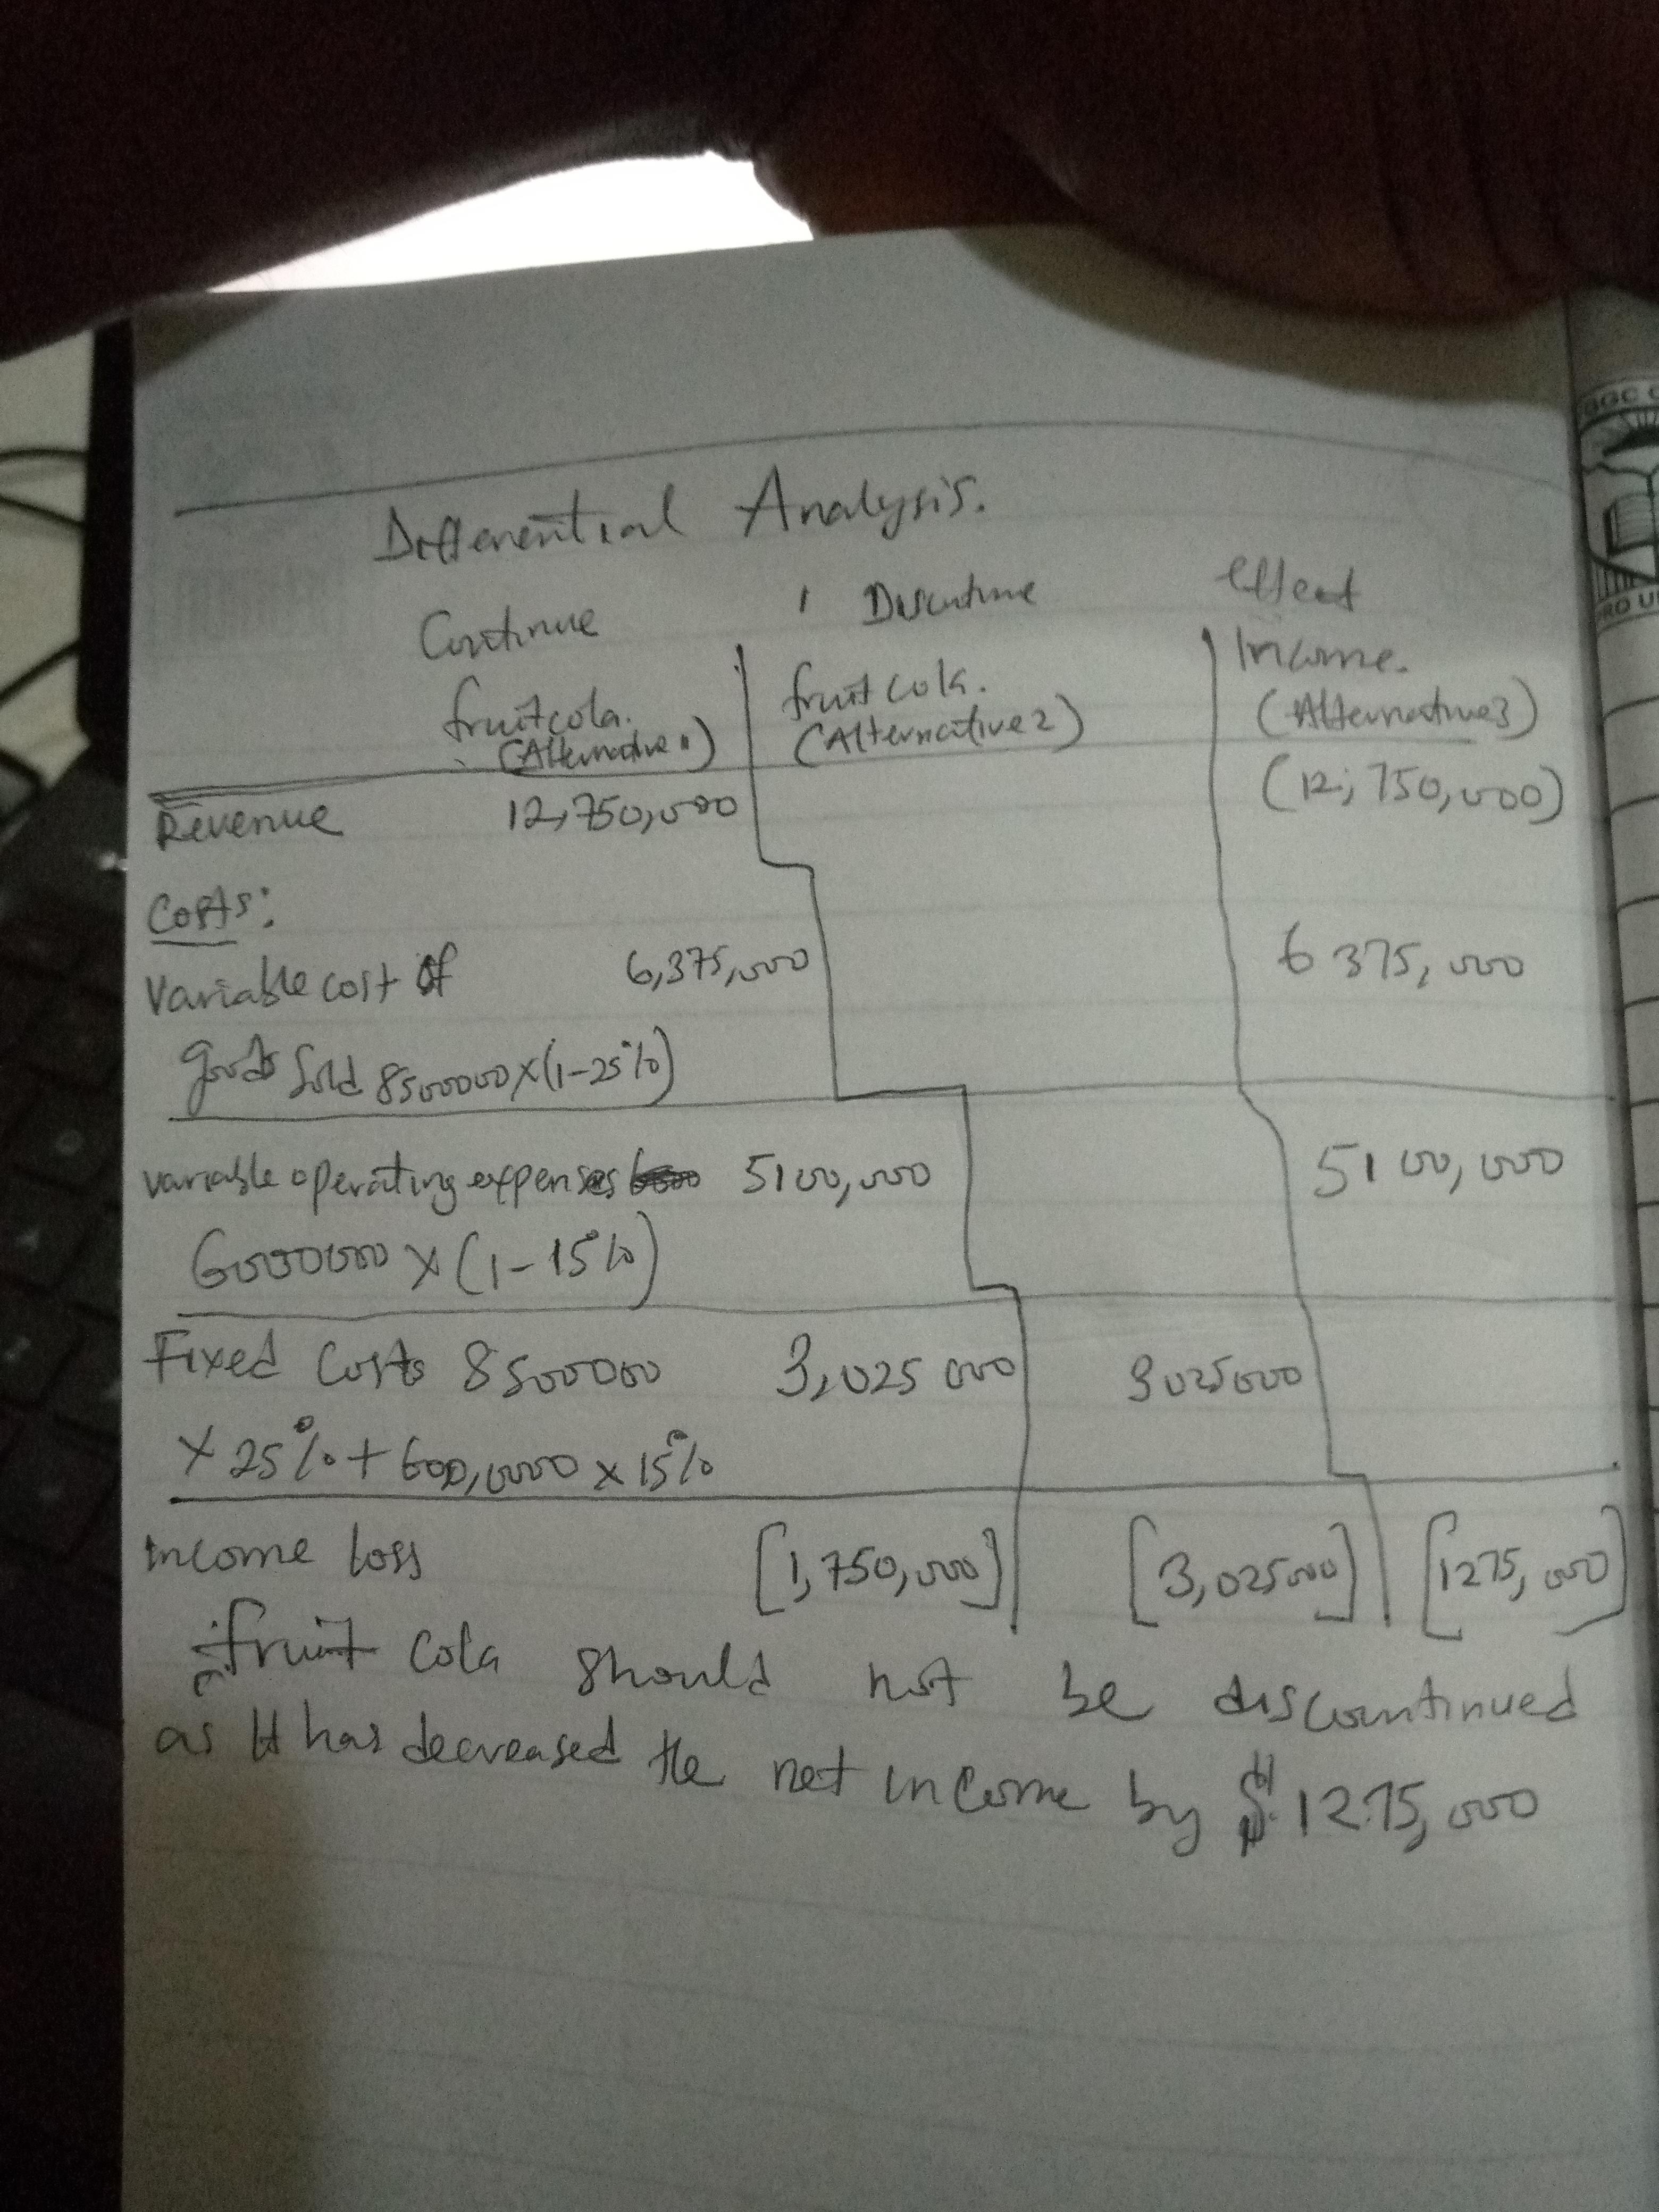 Differential Analysis.
Continue Discontinue effect
fruitcola. fruit cola. Income.
(Alternative 1) (Alternative 2) (Alternative 3)
Revenue 12,750,000 (12,750,000)
Costs:
Variable cost of 6,375,000 6 375,000
goods sold 8500000 x (1-25%)
variable operating expenses 5100,000 5100,000
6000000 x (1-15%)
Fixed Costs 8500000 3,025 000 3025000
x 25% + 600,0000 x 15%
Income loss [1,750,000] [3,025000] [1275,000]
fruit cola should not be discontinued
as It has decreased the net income by $ 1275,000
GGC
RO U